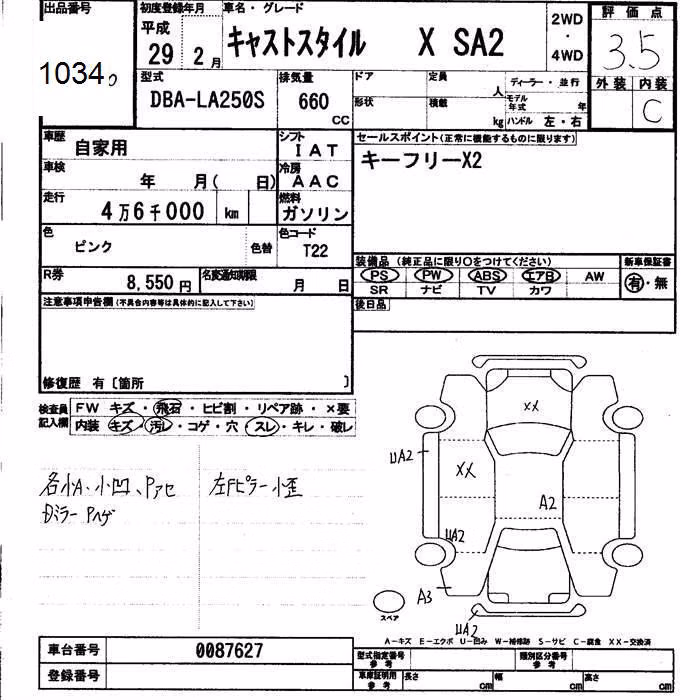 出品番号
1034
初度登録年月
平成
29 2 月
車名・グレード
キャストスタイル X SA2
2WD
・
4WD
評価点
3.5
外装 内装
C
型式
DBA-LA250S
排気量
660
CC
ドア
定員
人
ディーラー・並行
形状
積載
kg
モデル年式 年
ハンドル 左・右
車歴
自家用
シフト
IAT
車検
年 月( 日)
冷房
AAC
走行
4万6千000 km
燃料
ガソリン
色
ピンク
色替
色コード
T22
R券
8,550円
名変通知期限
月 日
セールスポイント(正常に機能するものに限ります)
キーフリーX2
装備品(純正品に限り○をつけてください)
PS PW ABS エアB AW
SR ナビ TV カワ
新車保証書
有・無
後日品
注意事項申告欄(不具合内容等は具体的に記入して下さい)
修復歴 有〔箇所 〕
検査員
記入欄
FW キズ・飛石・ヒビ割・リペア跡・×要
内装 キズ・汚レ・コゲ・穴・スレ・キレ・破レ
各小A、小凹、Pアセ
左Fピラー小歪
XX
UA2
XX
A2
UA2
A3
UA2
スペア
A-キズ E-エクボ U-凹み W-補修跡 S-サビ C-腐食 XX-交換済
車台番号
0087627
登録番号
型式指定番号
参考
類別区分番号
参考
車庫証明用
参考
長さ
cm
幅
cm
高さ
cm